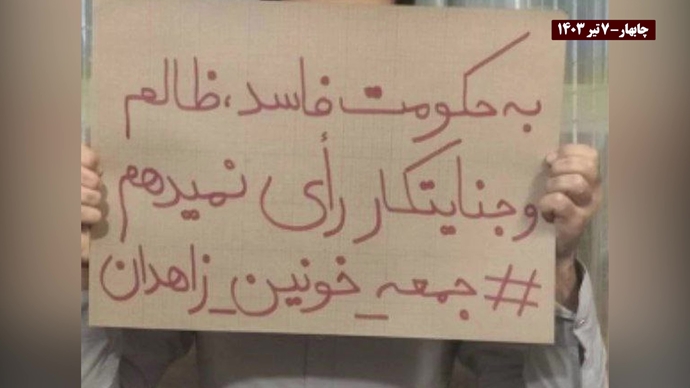 چابهار-۷ تیر ۱۴۰۳
به حکومت فاسد، ظالم
و جنایتکار رأی نمیدهم
#جمعه_خونین_زاهدان